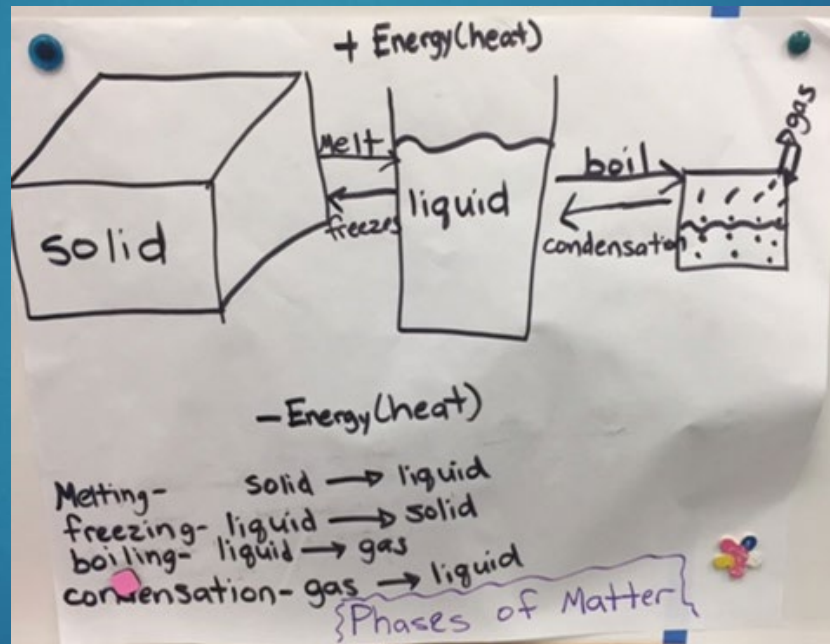 + Energy(heat)
gas
Melt
boil
solid
freezes
liquid
condensation
- Energy(heat)
Melting- solid → liquid
freezing- liquid → solid
boiling- liquid → gas
condensation- gas → liquid
Phases of Matter